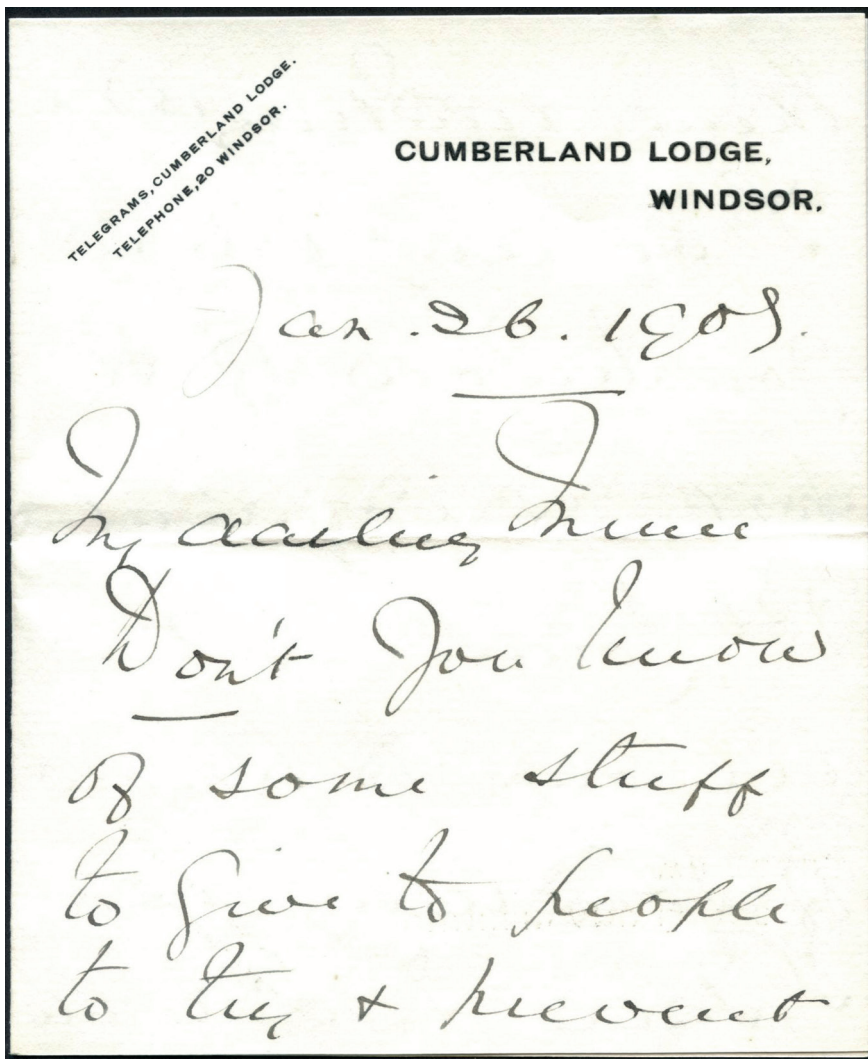 TELEGRAMS, CUMBERLAND LODGE.
TELEPHONE, 20 WINDSOR.
CUMBERLAND LODGE,
WINDSOR.
Jan. 26. 1905.
My darling
Don't you know
of some stuff
to give to people
to try & prevent